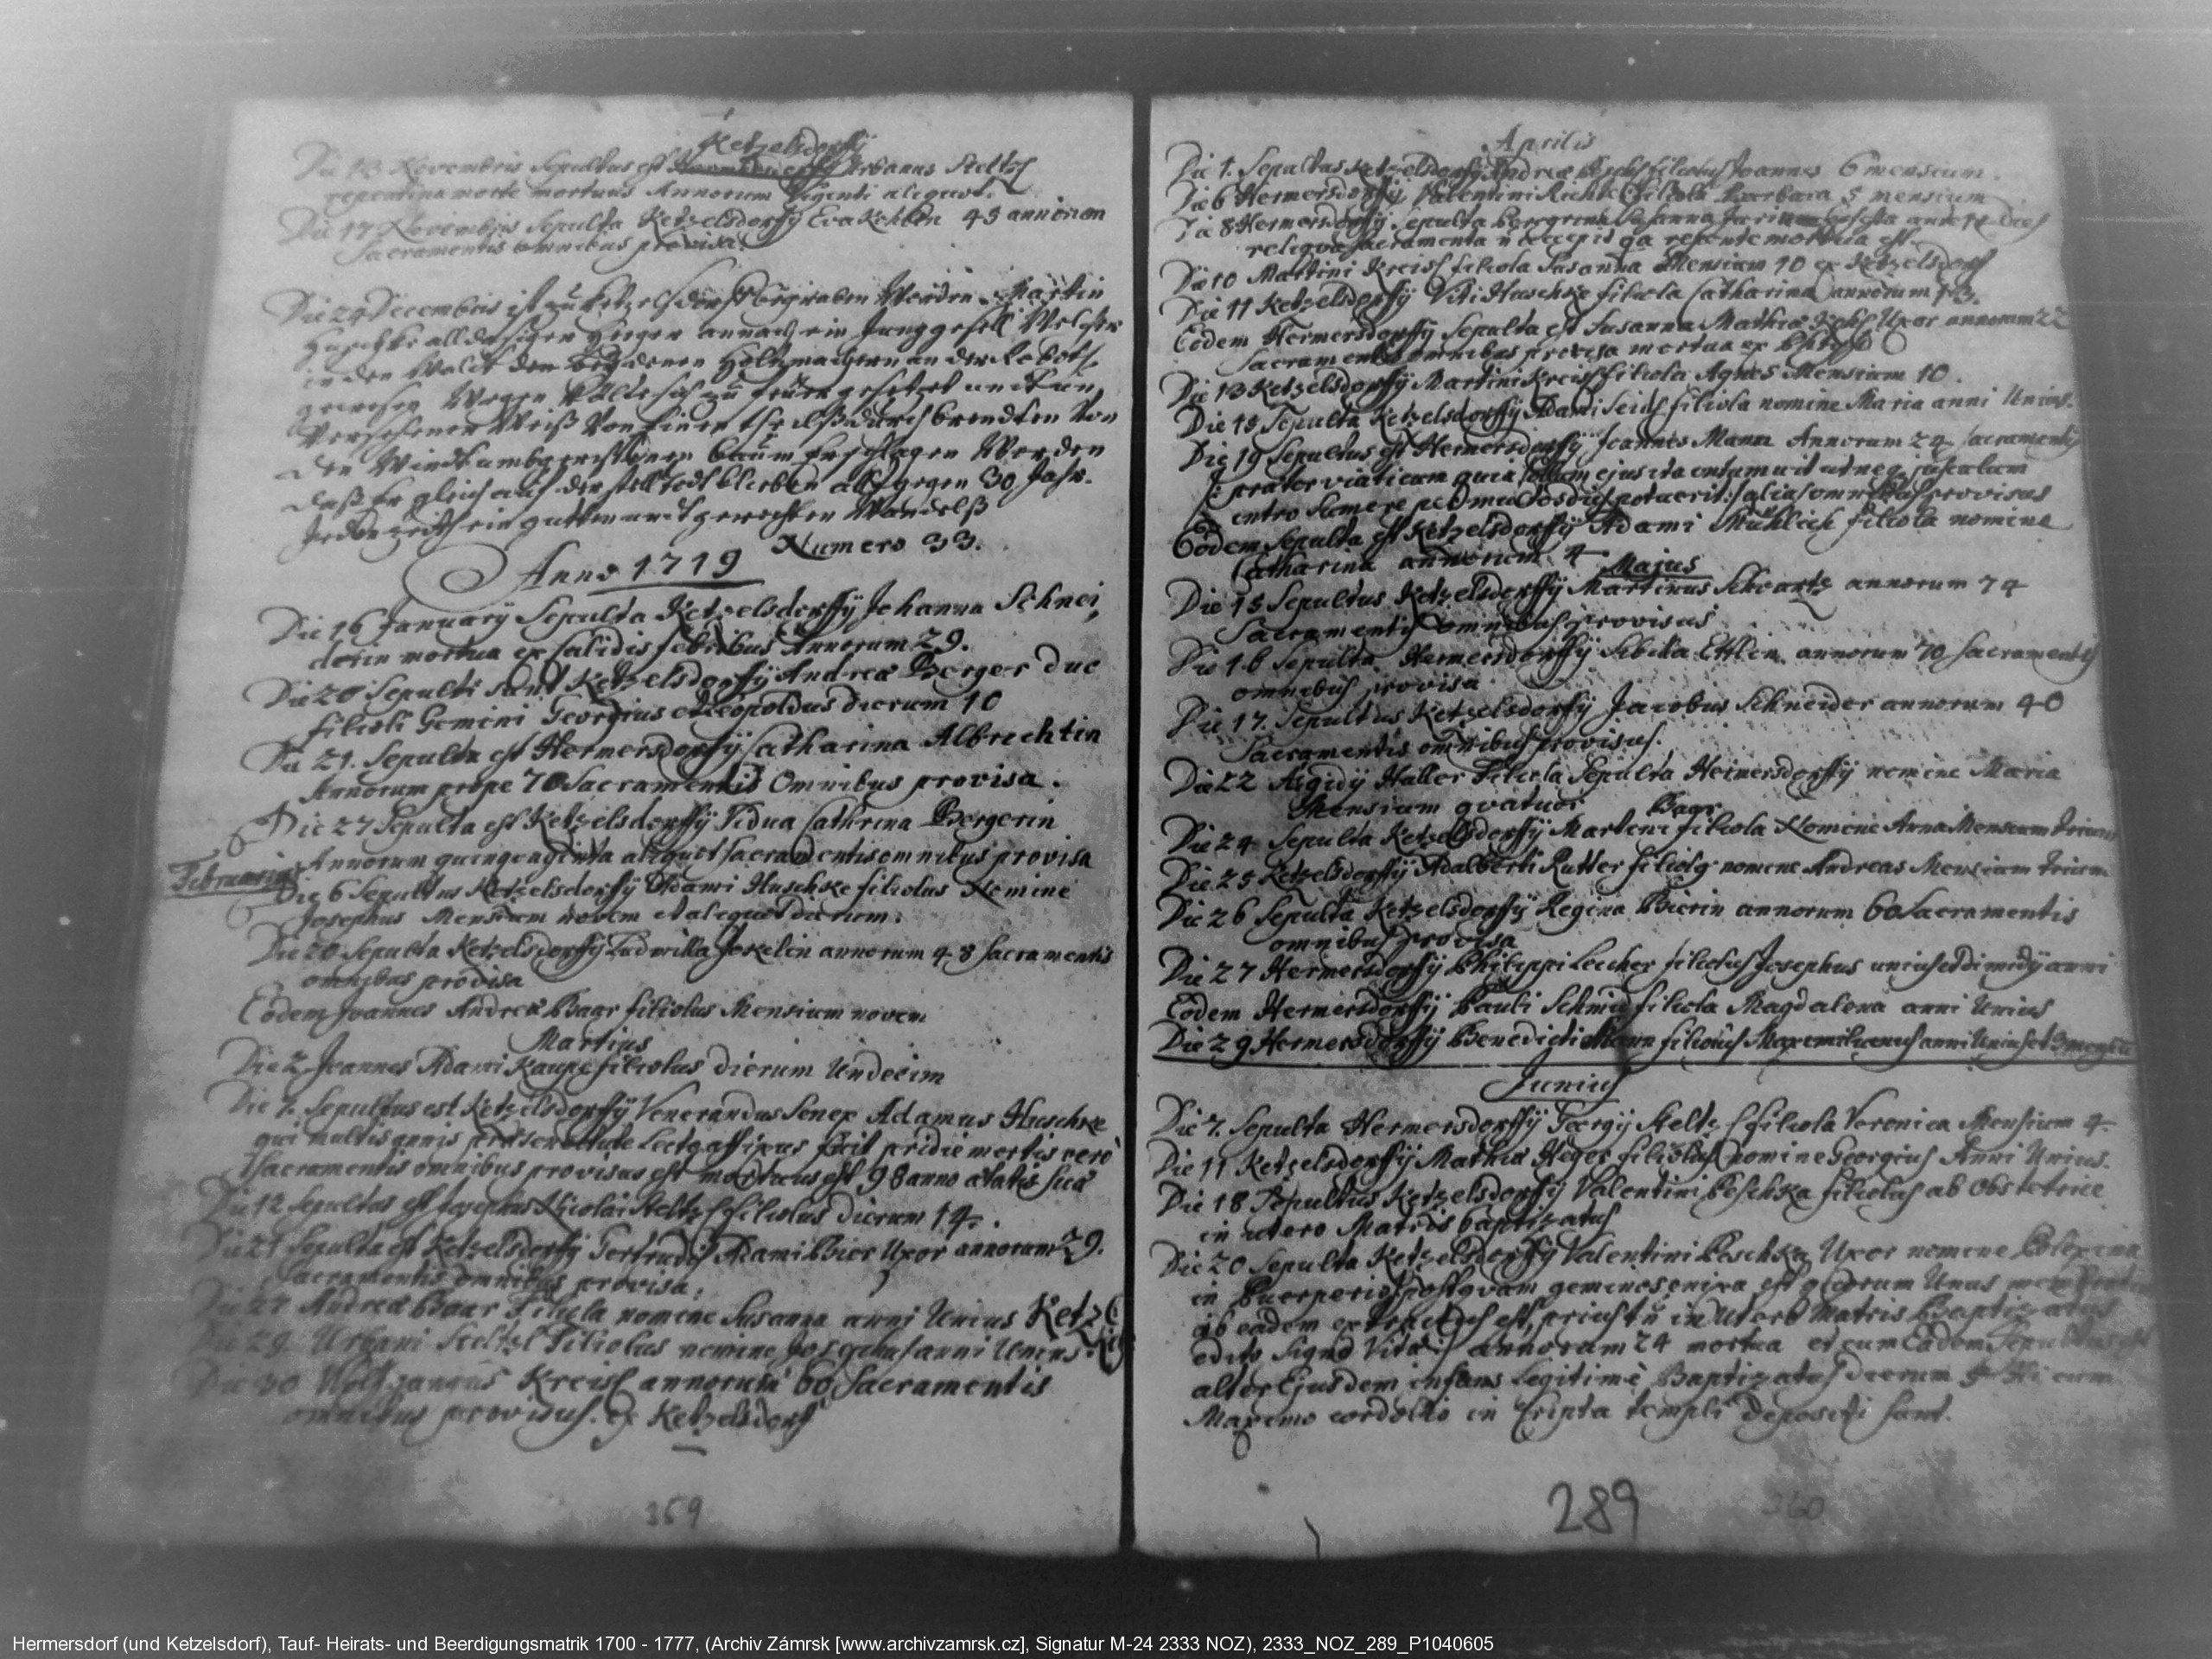 Ketzelsdorffÿ
Die 13 Novembris Sepultus est Urbanus Steltz
repentina morte mortuus Annorum Viginti aliquot.
Die 17 Novembris Sepulta Ketzelsdorffÿ Eva 43 annorum
Sacramentis omnibus provisa.
Die 24 Decembris ist zu Ketzelsdorff begraben Worden Martin
Huschke alldasigen Heger ein Junggesell Welcher
in den Waldt den Holtzmachern an der
gewesen Wegen Kälte sich zu feüer gesetzet
Versehener Weiß Von einer durch brendten Von
den Windt Baum Erschlagen Worden
daß Er gleich auf der stell todt blieben alt gegen 30 Jahr.
Jederzeith ein gutten undt gerechten Wandelß
Numero 33.
Anno 1719
Die 16 Januarÿ Sepulta Ketzelsdorffÿ Johanna Schnei,
derin mortua ex calidis febribus Annorum 29.
Die 20 Sepulti sunt Ketzelsdorffÿ Andreæ Berger duo
filioli Gemini Georgius et Leopoldus dierum 10
Die 21. Sepulta est Hermersdorffÿ Catharina Albrechtin
Annorum prope 70 Sacramentis Omnibus provisa.
Die 27 Sepulta est Ketzelsdorffÿ Vidua Cathrina Bergerin
Annorum quinquaginta aliquot Sacramentis omnibus provisa
Februarius
Die 6 Sepultus Ketzelsdorffÿ Adami Huschke filiolus Nomine
Josephus Mensium novem et aliquot dierum.
Die 20 Sepulta Ketzelsdorffÿ Ludmilla Jokelin annorum 48 Sacramentis
omnibus provisa
Eodem Joannes Andreæ Baar filiolus Mensium novem
Martius
Die 2 Joannes Adami Kaupe filiolus dierum Undecim
Die 7. Sepultus est Ketzelsdorffÿ Venerandus Senex Adamus Huschke
qui multis annis præ senectute Lectgaffixus fuit pridie mortis vero
Sacramentis omnibus provisus est mortuus est 98 anno ætatis suæ
Die 12 Sepultus est Josephus Nicolai Steltz filiolus dierum 14.
Die 21 Sepulta est Ketzelsdorffÿ Gertrudis Adami Bier Uxor annorum 29.
Sacramentis omnibus provisa.
Die 27 Andreæ Baar Filiola nomine Susanna anni Unius Ketzels
Die 29. Urbani Steltzl Filiolus nomine Josephus anni Unius.
Die 30 Wolfgangus Kreisl annorum 60 Sacramentis
omnibus provisus. ex Ketzelsdorf
359
Aprilis
Die 1. Sepultus Ketzelsdorffÿ Andreæ filiolus Joannes 6 mensium.
Die 6 Hermersdorffÿ Valentini filiola Barbara 5 mensium
Die 8 Hermersdorffÿ Sepulta Susanna
reliqua Sacramenta ñ accepit qa repente mortua est.
Die 10 Martini Kreisl filiola Susanna Mensium 10 ex Ketzelsdorf
Die 11 Ketzelsdorffÿ Viti Huschke filiola Catharina annorum 13.
Eodem Hermersdorffÿ Sepulta est Susanna Mathiæ Uxor annorum 22
Sacramentis omnibus provisa mortua ex Phtysi
Die 13 Ketzelsdorffÿ Martini Kreisl filiola Agnes Mensium 10.
Die 15 Sepulta Ketzelsdorffÿ Adami Seidl filiola nomine Maria anni Unius.
Die 19 Sepultus est Hermersdorffÿ Joannes Mann Annorum 24 Sacramentis
/: præter viaticum quia collum ejus ita intumuit ut neq jusculum
intro sumere potuerit :/ aliis omnibus provisus
Eodem Sepulta est Ketzelsdorffÿ Adami Mühlich filiola nomine
Catharina annorum 4
Majus
Die 15 Sepultus Ketzelsdorffÿ Martinus Schvartz annorum 74
Sacramentis omnibus provisus
Die 16 Sepulta Hermersdorffÿ Sibilla Ettlin annorum 70 Sacramentis
omnibus provisa
Die 17. Sepultus Ketzelsdorffÿ Jacobus Schneider annorum 40
Sacramentis omnibus provisus.
Die 22 Ægidÿ Haller Filiola Sepulta Heimersdorffÿ nomine Maria
Mensium quatuor
Baar
Die 24 Sepulta Ketzelsdorffÿ Martini filiola Nomine Anna Mensium trium
Die 25 Ketzelsdorffÿ Adalberti Rutter filiolg nomine Andreas Mensium trium
Die 26 Sepulta Ketzelsdorffÿ Regina Bierin annorum 60 Sacramentis
omnibus provisa
Die 27 Hermersdorffÿ Philippi Lecher filiolus Josephus unius et dimidÿ anni
Eodem Hermersdorffÿ Pauli Schmid filiola Magdalena anni Unius
Die 29 Hermersdorffÿ Benedicti Mann filiolus Maximilianus anni Unius et 3 mensiu
Junius
Die 7. Sepulta Hermersdorffÿ Georgÿ Steltz filiola Veronica Mensium 4.
Die 11 Ketzelsdorffÿ Mathiæ Heger filiolus nomine Georgius Anni Unius.
Die 18 Sepultus Ketzelsdorffÿ Valentini Peschka filiolus ab Obstetrice
in utero Matris baptizatus
Die 20 Sepulta Ketzelsdorffÿ Valentini Peschka Uxor nomine Polexina
in Puerperio postquam geminos enixa est quorum Unus
ab eadem extractus est, prius tñ in Utero Matris Baptizatus
edito Signo Vitæ :/ annorum 24 mortua et cum Eadem Sepultus est
alter Ejusdem infans Legitime Baptizatus dierum 5 cum
Maximo cordolio in Cripta templi Depositi sunt.
289
360
Hermersdorf (und Ketzelsdorf), Tauf- Heirats- und Beerdigungsmatrik 1700 - 1777, (Archiv Zámrsk [www.archivzamrsk.cz], Signatur M-24 2333 NOZ), 2333_NOZ_289_P1040605